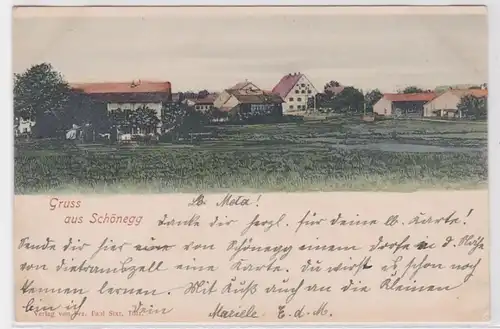 Gruss
aus Schönegg
Lb. Meta!
Danke dir herzl. für deine lb. Karte!
Sende dir hier von Schönegg einem Dorfe in d. Nähe
von Dietramszell eine Karte. Du wirst es schon noch
kennen lernen. Mit Kuß auch an die Kleinen
bin ich Dein Mariele E.d.M.
Verlag von Paul Sixt,